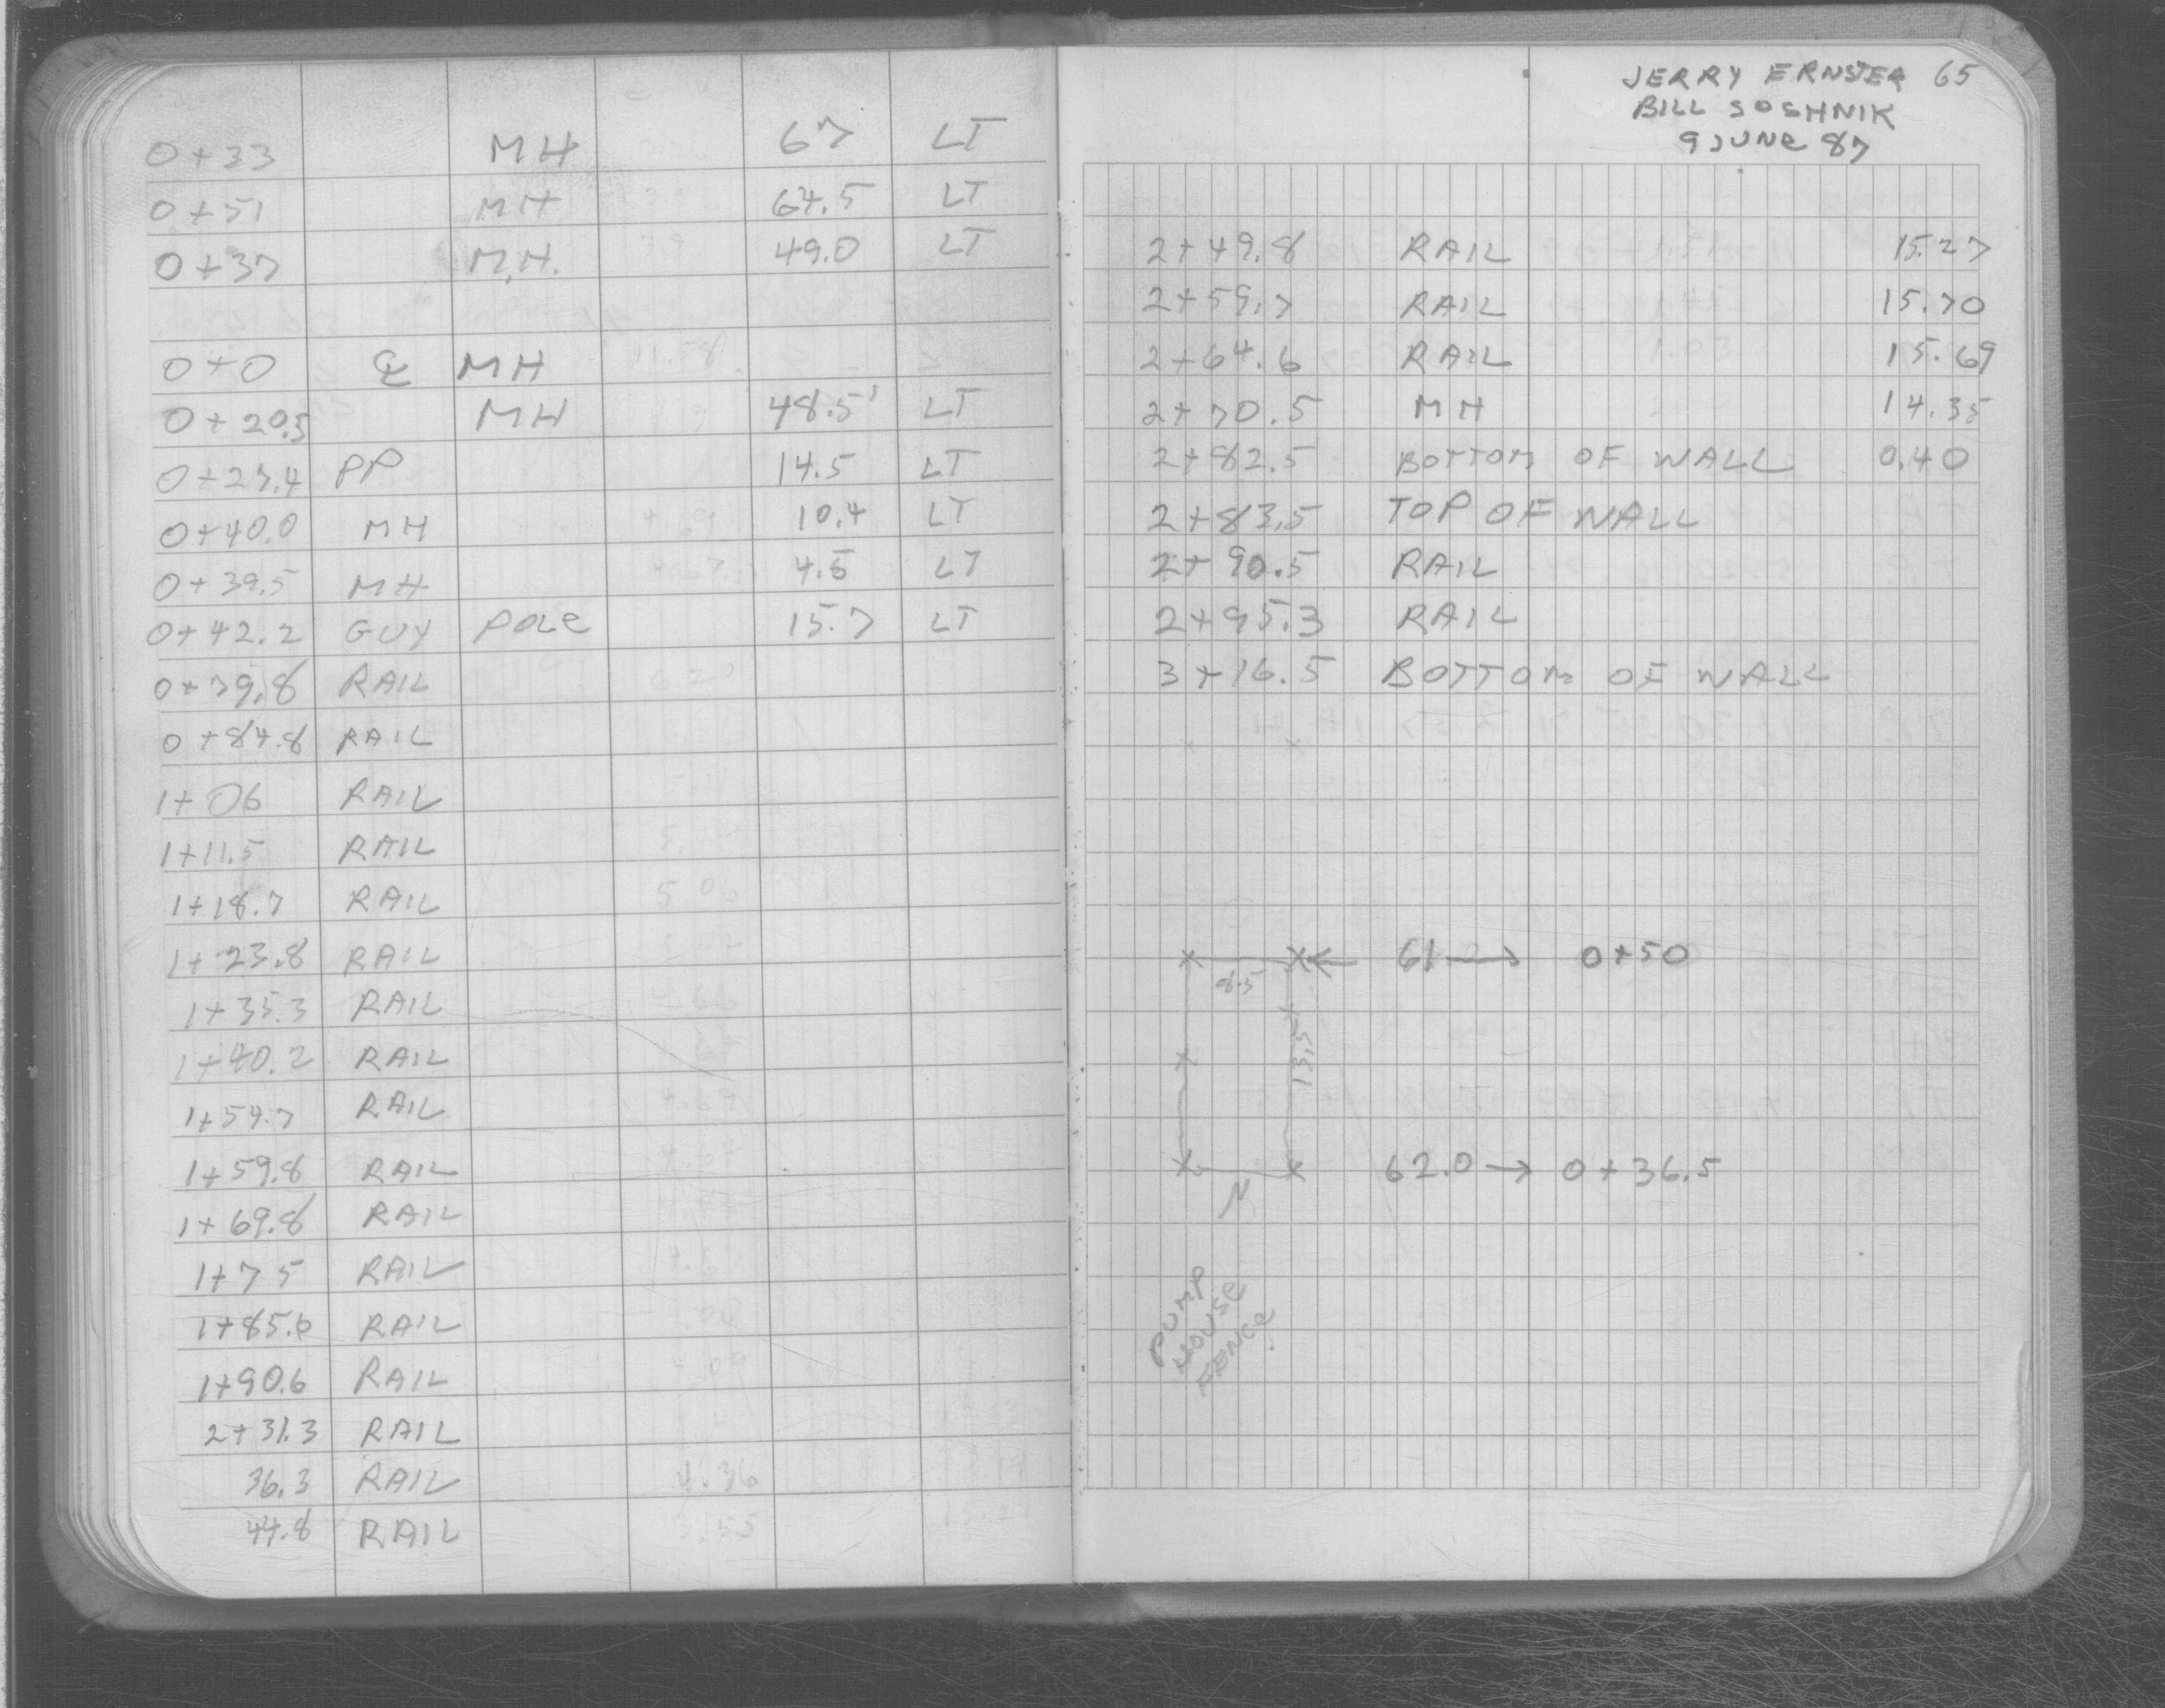 0+33 MH 67 LT
0+51 MH 64.5 LT
0+37 M.H. 49.0 LT
0+0 ℄ MH 11.58
0+20.5 MH 48.5' LT
0+27.4 PP 14.5 LT
0+40.0 MH 10.4 LT
0+39.5 MH 4.5 LT
0+42.2 GUY POLE 15.7 LT
0+79.8 RAIL
0+84.8 RAIL
1+06 RAIL
1+11.5 RAIL
1+18.7 RAIL 5.06
1+23.8 RAIL
1+35.3 RAIL
1+40.2 RAIL
1+54.7 RAIL
1+59.8 RAIL
1+69.8 RAIL
1+75 RAIL
1+85.6 RAIL
1+90.6 RAIL
2+31.3 RAIL
36.3 RAIL 4.36
44.8 RAIL 3.55
JERRY ERNSTER 65
BILL SOSHNIK
9 JUNE 87
2+49.8 RAIL 15.27
2+59.7 RAIL 15.70
2+64.6 RAIL 15.69
2+70.5 MH 14.35
2+82.5 BOTTOM OF WALL 0.40
2+83.5 TOP OF WALL
2+90.5 RAIL
2+95.3 RAIL
3+16.5 BOTTOM OF WALL
61.2 → 0+50
8.5
13.5
62.0 → 0+36.5
N
PUMP
HOUSE
FENCE